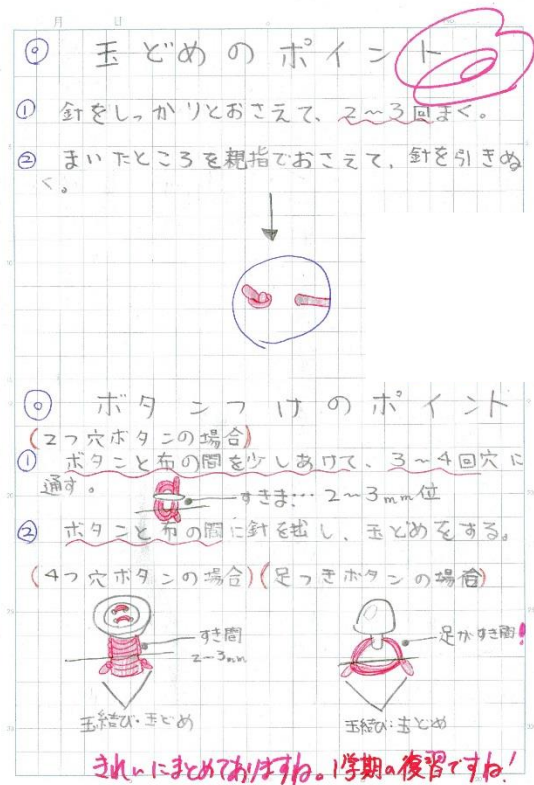 月 日
◎ 玉どめのポイント
① 針をしっかりとおさえて、2〜3回まく。
② まいたところを親指でおさえて、針を引きぬ
く。
◎ ボタンつけのポイント
(2つ穴ボタンの場合)
① ボタンと布の間を少しあけて、3〜4回穴に
通す。
すきま…2〜3mm位
② ボタンと布の間に針を出し、玉どめをする。
(4つ穴ボタンの場合)(足つきボタンの場合)
すき間
2〜3mm
足がすき間!
玉結び・玉どめ
玉結び・玉どめ
きれいにまとめてありますね。1学期の復習ですね!